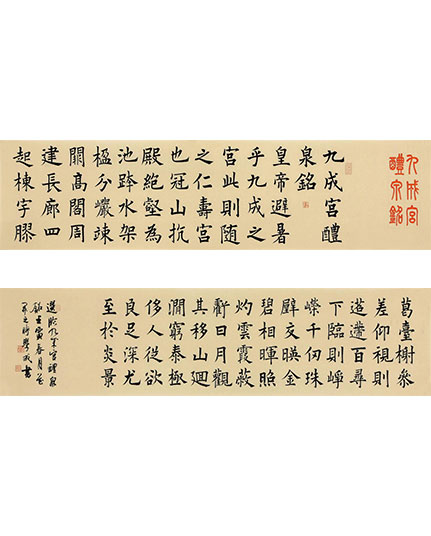 九成宮
醴泉銘
九成宮醴
泉銘
皇帝避暑
乎九成之
宮此則随
之仁壽宮
也冠山抗
殿絶壑為
池跨水架
楹分巖竦
闕髙閣周
建長廊四
起棟宇膠
葛臺榭參
差仰視則
迢遰百尋
下臨則崢
嶸千仞珠
璧交暎金
碧相暉照
灼雲霞蔽
虧日月觀
其移山廻
澗窮泰極
侈人從欲
良足深尤
至於炎景
選臨九成宮醴泉
銘壬寅春月
書